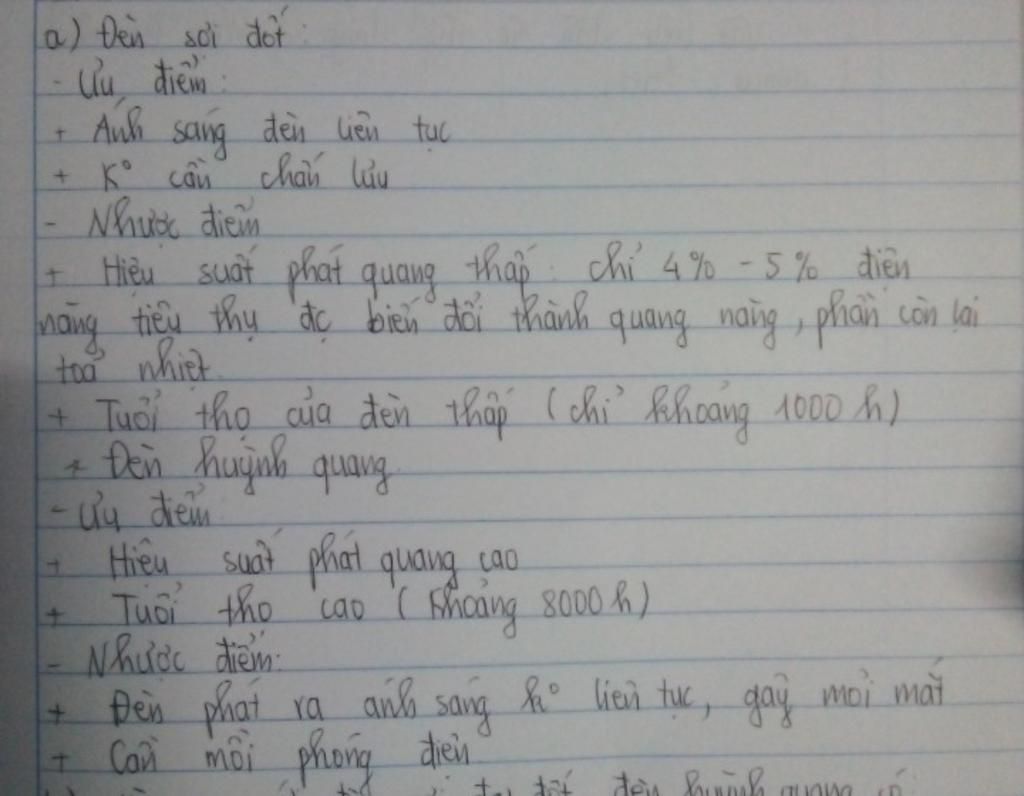 a) Đèn sợi đốt
- Ưu điểm:
+ Ánh sáng đèn liên tục
+ K° cần chấn lưu
- Nhược điểm
+ Hiệu suất phát quang thấp: chỉ 4% - 5% điện
năng tiêu thụ đc biến đổi thành quang năng, phần còn lại
toả nhiệt.
+ Tuổi thọ của đèn thấp (chỉ khoảng 1000 h)
* Đèn huỳnh quang
- Ưu điểm
+ Hiệu suất phát quang cao
+ Tuổi thọ cao (khoảng 8000 h)
- Nhược điểm:
+ Đèn phát ra ánh sáng k° liên tục, gây mỏi mắt
+ Cần mồi phóng điện
đèn huỳnh quang có